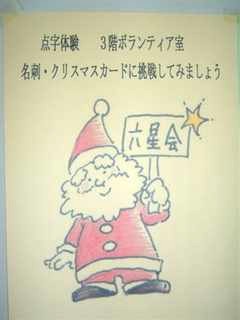 点字体験　３階ボランティア室
名刺・クリスマスカードに挑戦してみましょう
六星会